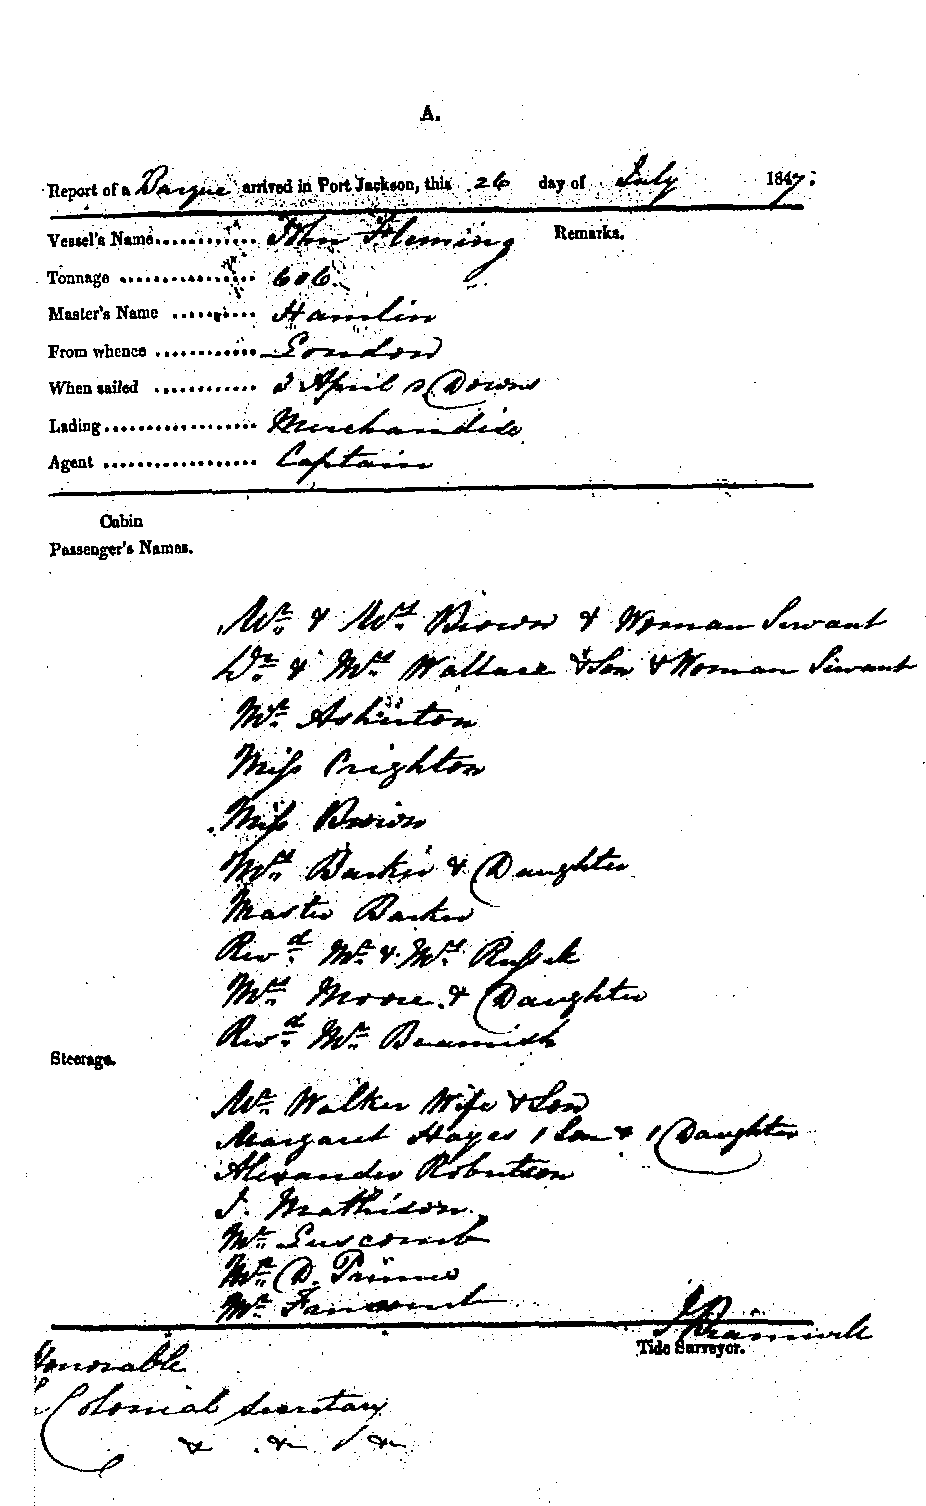 A.
Report of a Barque arrived in Port Jackson, this 26 day of July 1847:
Vessel's Name............ John Fleming Remarks.
Tonnage ................ 606
Master's Name ............ Hamlin
From whence ............ London
When sailed ............ 3 April Downs
Lading.................. Merchandise
Agent .................. Captain
Cabin
Passenger's Names.
Mr. & Mrs. Brown & Woman Servant
Dr. & Mrs. Wallace & Son & Woman Servant
Mr. Asherton
Miss Crighton
Miss Brown
Mrs. Barker & Daughter
Master Barker
Revd. Mr. & Mrs.
Mrs. Moore & Daughter
Revd. Mr. Beamish
Steerage.
Mr. Walker Wife & Son
Margaret Hayes 1 Son & 1 Daughter
Alexander Robertson
J. Mathison
Mr. Luscomb
Mr. D.
Mr.
Tide Surveyor.
Honorable
Colonial Secretary
& & &